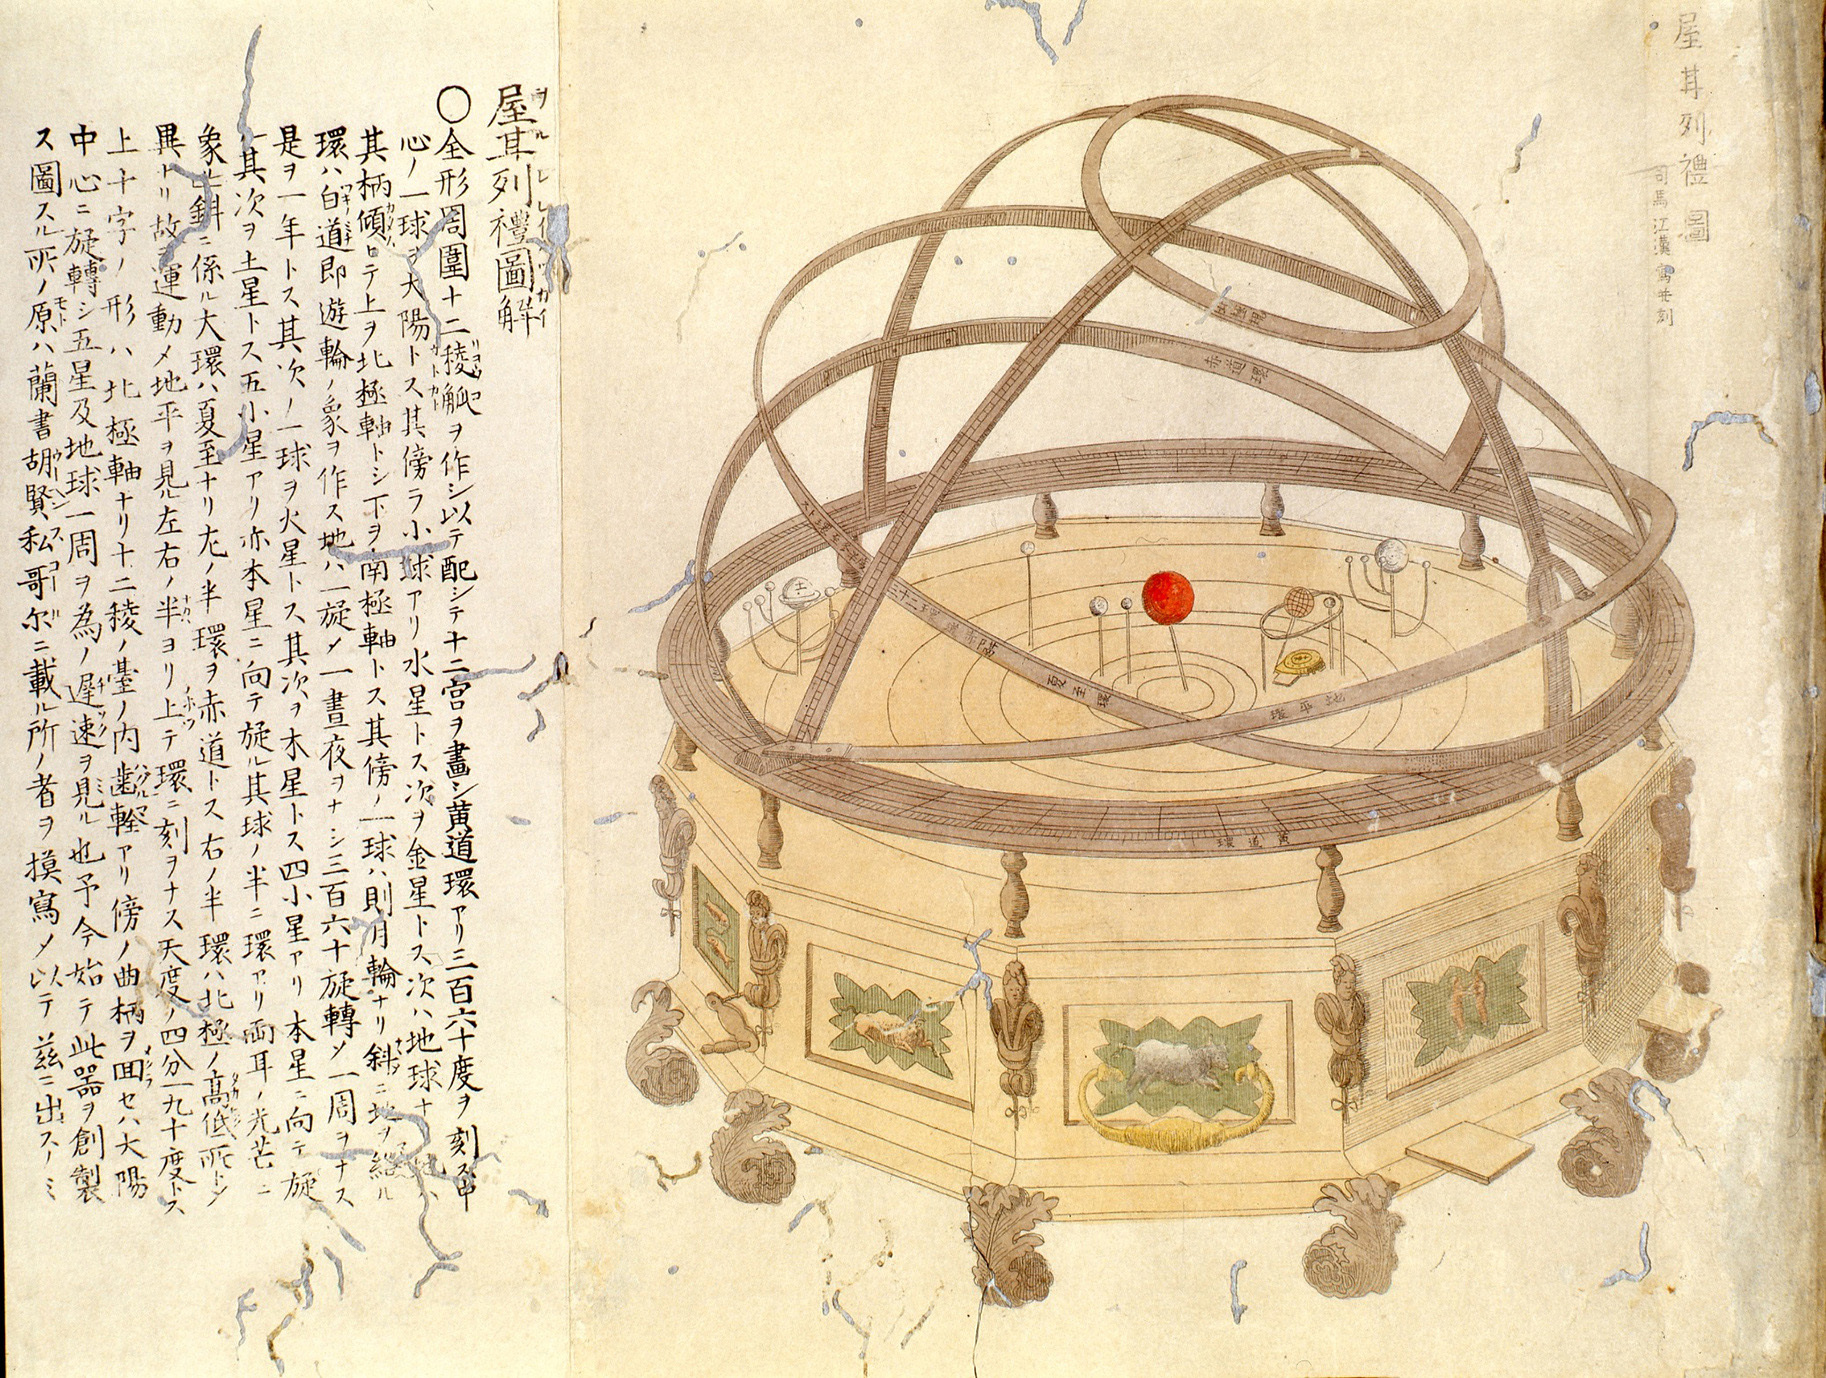 屋耳列禮圖
司馬江漢寫并刻
赤道環
夏至環
地平環
黄道環
屋耳列禮圖解
〇全形周圍十二稜觚ヲ作シ以テ配シテ十二宮ヲ畫シ黄道環アリ三百六十度ヲ刻ス中
心ノ一球ヲ大陽トス其傍ラ小球アリ水星トス次ヲ金星トス次ハ地球ナ
其柄傾ヒテ上ヲ北極軸トシ下ヲ南極軸トス其傍ノ一球ハ則月輪ナリ斜ニ地ヲ繞ル
環ハ白道即遊輪ノ象ヲ作ス地ハ一旋〆一晝夜ヲナシ三百六十旋轉〆一周ヲナス
是ヲ一年トス其次ノ一球ヲ火星トス其次ヲ木星トス四小星アリ本星ニ向テ旋
其次ヲ土星トス五小星アリ亦本星ニ向テ旋ル其球ノ半ニ環アリ両耳ノ光芒ニ
象ル斜ニ係ル大環ハ夏至ナリ左ノ半環ヲ赤道トス右ノ半環ハ北極ノ高低所トシ
異ナリ故ヲ運動〆地平ヲ見ル左右ノ半ヨリ上テ環ニ刻ヲナス天度ノ四分一九十度トス
上十字ノ形ハ北極軸ナリ十二稜ノ臺ノ内歯輪アリ傍ノ曲柄ヲ囬セハ大陽
中心ニ旋轉シ五星及地球一周ヲ為ノ遲速ヲ見ル也予今始テ此噐ヲ創製
ス圖スル所ノ原ハ蘭書胡賢私哥尓ニ載ル所ノ者ヲ摸寫〆以テ茲ニ出スノミ